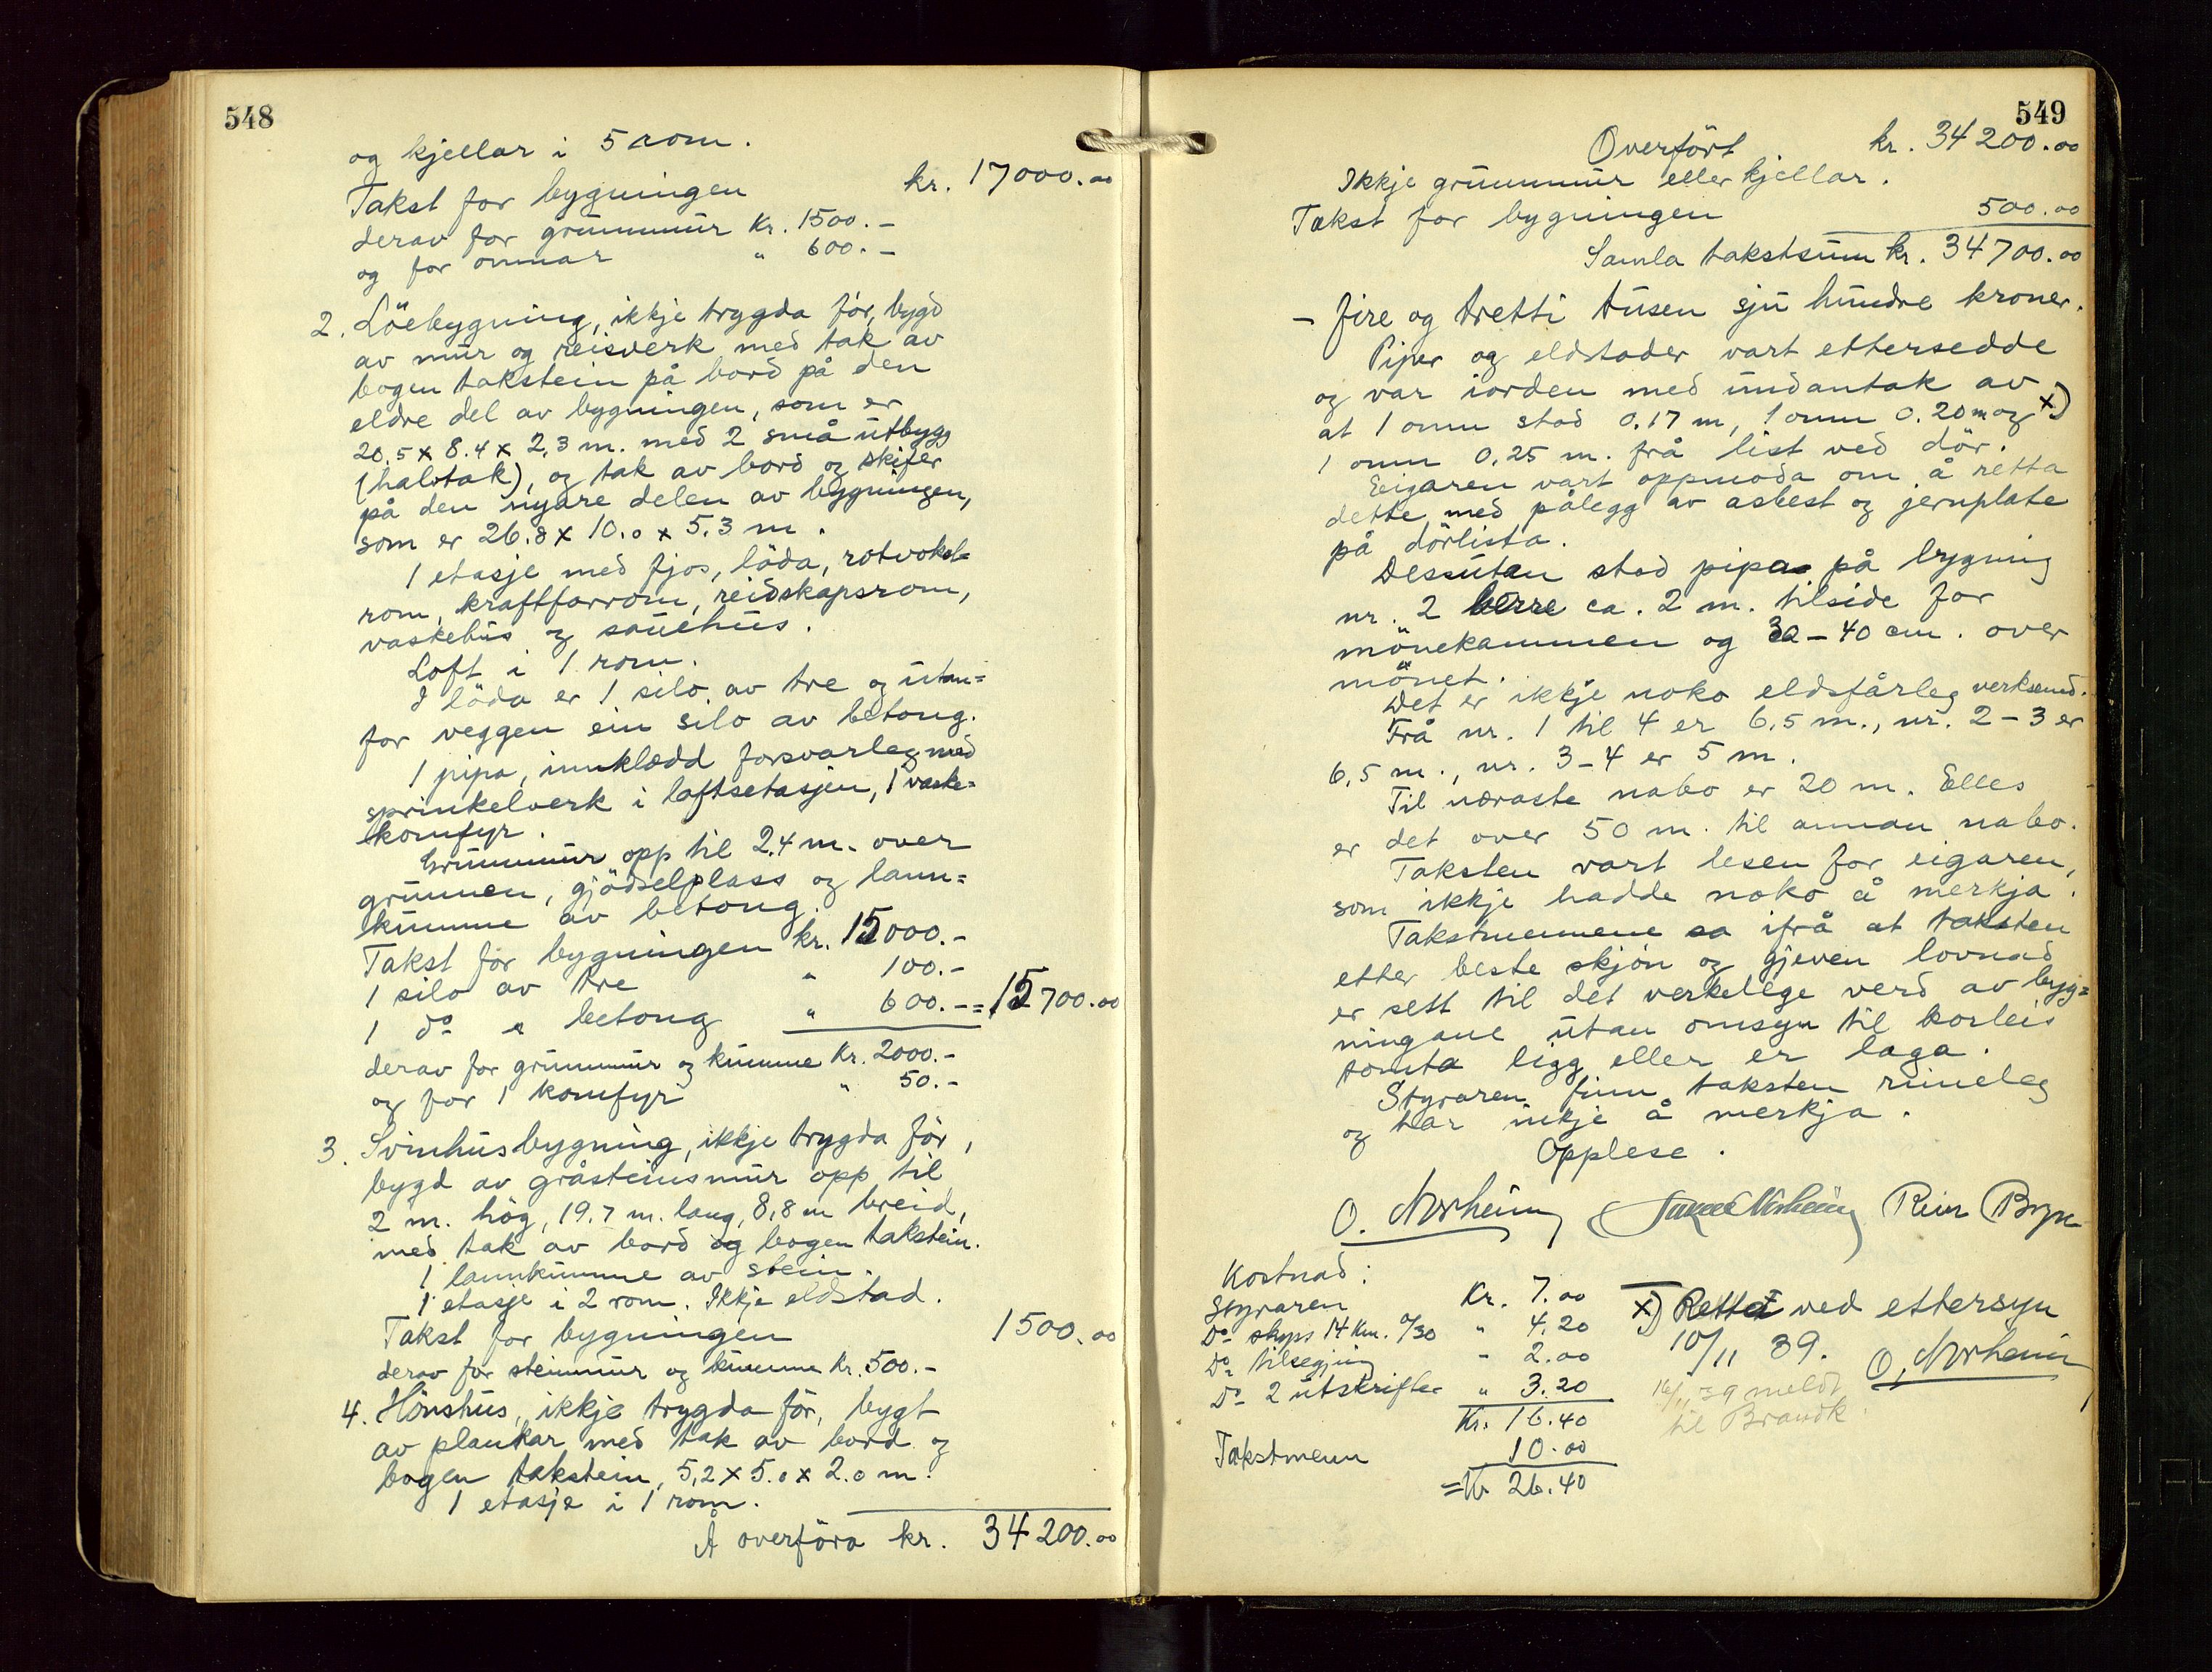 548
og kjellar i 5 rom.
Takst for bygningen kr. 17000.00
derav for grunnmur Kr. 1500.-
og for omnar " 600.-
2. Löebygning, ikkje trygda för, bygd
av mur og reisverk med tak av
bogen takstein på bord på den
eldre del av bygningen, som er
20.5 x 8.4 x 2,3 m. med 2 små utbygg
(halvtak), og tak av bord og skifer
på den nyare delen av bygningen,
som er 26.8 x 10.0 x 5.3 m.
1 etasje med fjos, löda, rotvokst=
rom, kraftforrom, reidskapsrom,
vaskehus og sauehus.
Loft i 1 rom.
I löda er 1 silo av tre og utan=
for veggen ein silo av betong.
1 pipa, innklædd forsvarleg med
sprinkelverk i loftsetasjen, 1 vaske=
komfyr.
Grunnmur opp til 2,4 m. over
grunnen, gjödselplass og lann=
kumme av betong.
Takst för bygningen kr. 15000.-
1 silo av tre " 100.-
1 do " betong " 600.- = 15700.00
derav for grunnmur og kumme Kr. 2000.-
og for 1 komfyr " 50.-
3. Svinhusbygning, ikkje trygda för,
bygd av gråsteinsmur opp til
2 m. hög, 19.7 m. lang, 8,8 m breid,
med tak av bord og bogen takstein.
1 lannkumme av stein.
1 etasje i 2 rom. Ikkje eldstad.
Takst for bygningen 1500.00
derav for steinmur og kumme Kr. 500.-
4. Hönshus, ikkje trygda för, bygt
av plankar med tak av bord og
bogen takstein, 5,2 x 5.0 x 2.0 m.
1 etasje i 1 rom.
Å overföra kr. 34200.00
549
Overfört kr. 34200.00
Ikkje grunnmur eller kjellar.
Takst for bygningen 500.00
Samla takstsum kr. 34700.00
- fire og tretti tusen sju hundre kroner.
Piper og eldstader vart ettersedde
og var iorden med undantak av
at 1 omn stod 0.17 m, 1 omn 0.20 m og x)
1 omn 0,25 m. frå list ved dör.
Eigaren vart oppmoda om å retta
dette med pålegg av asbest og jernplate
på dörlista.
Dessutan stod pipa på bygning
nr. 2 berre ca. 2 m. tilside for
mönekammen og 30-40 cm. over
mönet.
Det er ikkje noko eldsfårleg verksemd.
Frå nr. 1 til 4 er 6,5 m., nr. 2-3 er
6,5 m., nr. 3-4 er 5 m.
Til næraste nabo er 20 m. Elles
er det over 50 m. til annan nabo.
Taksten vart lesen for eigaren,
som ikkje hadde noko å merkja.
Takstmennene sa ifrå at taksten
etter beste skjön og gjeven lovnad
er sett til det verkelege verd av byg=
ningane utan omsyn til korleis
tomta ligg eller er laga.
Styraren finn taksten rimeleg
og har inkje å merkja.
Opplese.
O. Norheim Norheim Reier Bryne
Kostnad:
Styraren Kr. 7.00
Do skyss 14 km. a/30 " 4.20
Do tilsegjing " 2.00
Do 2 utskrifter " 3.20
Kr. 16.40
Takstmenn 10.00
= Kr 26.40
x) Rettet ved ettersyn
10/11 39.
O. Norheim
16/11 39 meldt
til Brandk.